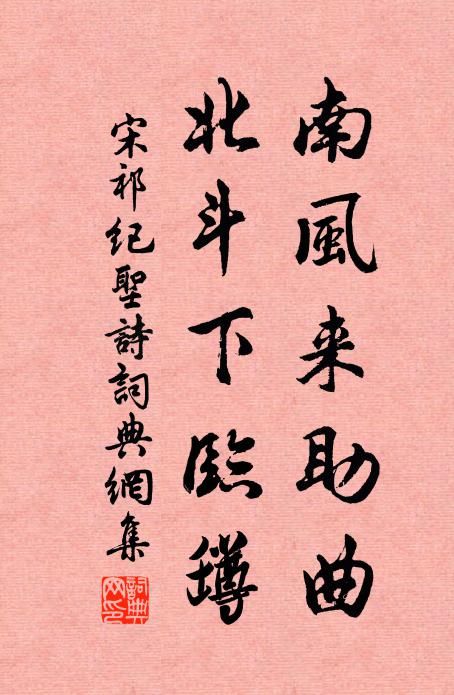 南風来助曲
北斗下臨罇
宋祁紀聖詩詞典網集
詞典网印